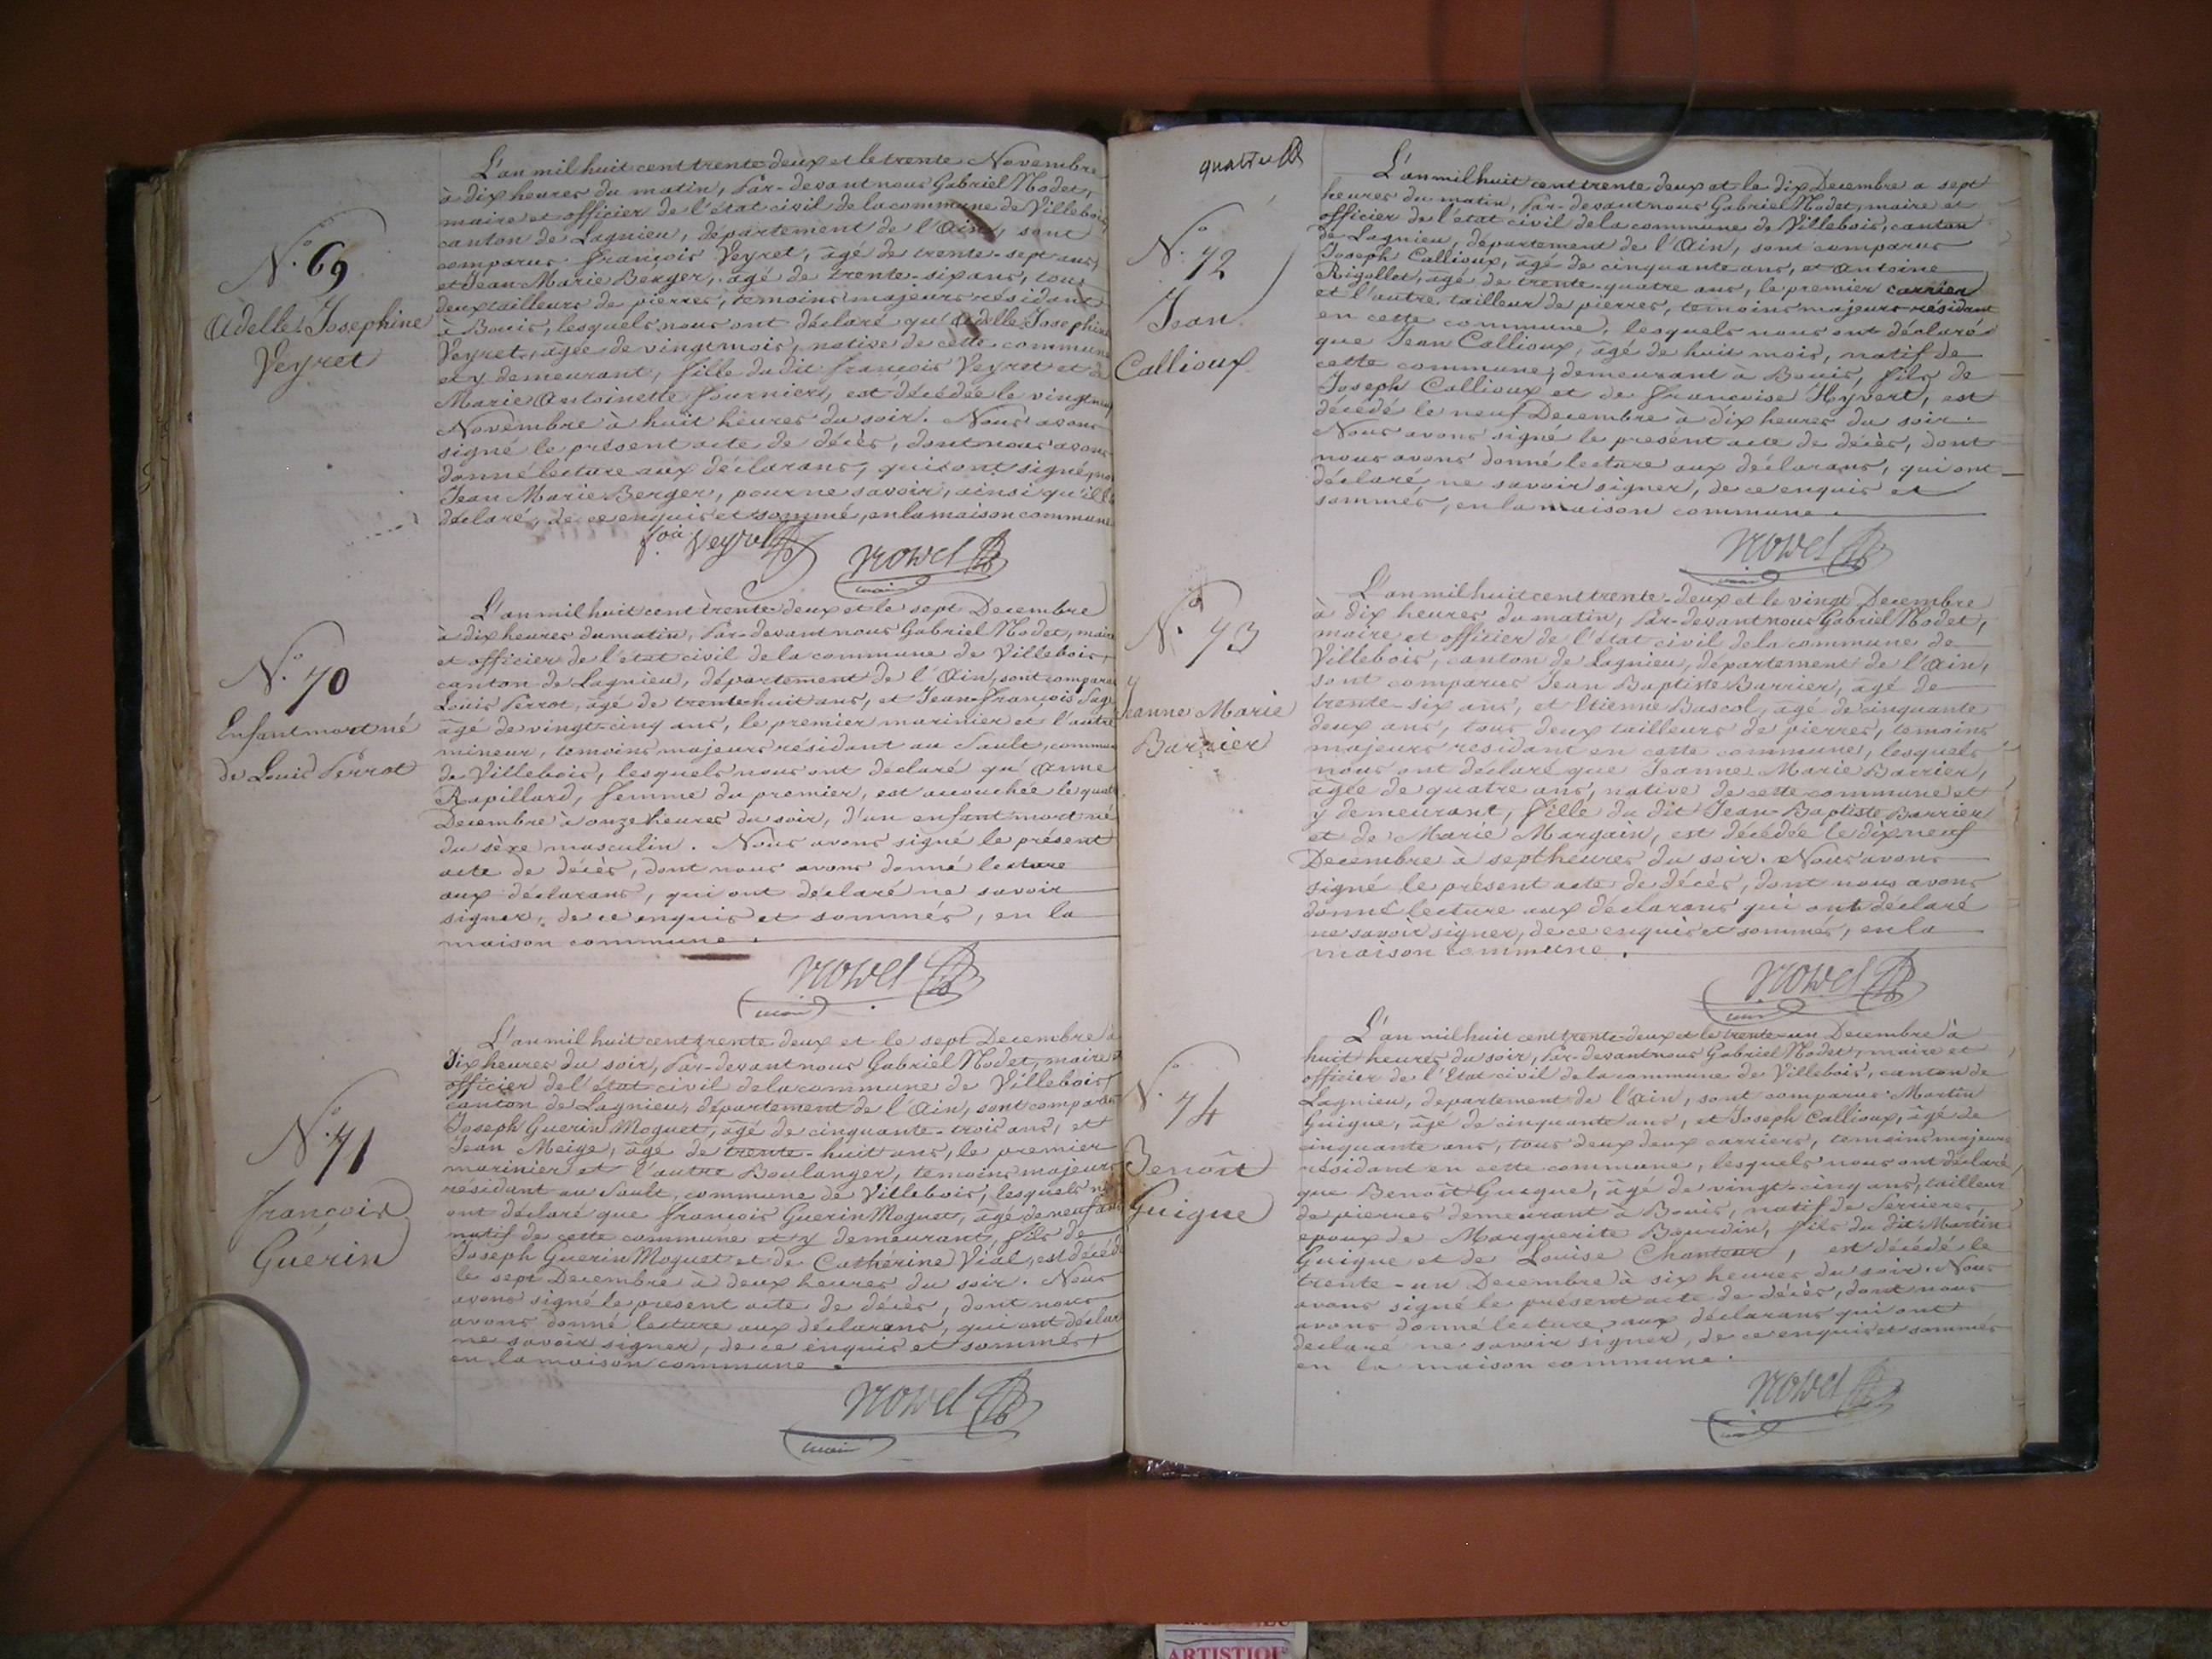 N.o 69
Adelle Josephine
Veyret
L'an mil huit cent trente deux et le trente Novembre
à dix heures du matin, Par-devant nous Gabriel Nodet,
maire et officier de l'état civil de la commune de Villebois,
canton de Lagnieu, département de l'Ain, sont
comparus François Veyret, âgé de trente-sept ans,
et Jean Marie Berger, âgé de trente-six ans, tous
deux tailleurs de pierres, temoins majeurs résidant
à Bouis, lesquels nous ont déclaré qu'Adelle Josephine
Veyret, âgée de vingt mois, native de cette commune
et y demeurant, fille du dit François Veyret et de
Marie Antoinette Fournier, est décédée le vingt neuf
Novembre à huit heures du soir. Nous avons
signé le présent acte de décès, dont nous avons
donné lecture aux déclarans, qui ont signé, non
Jean Marie Berger, pour ne savoir, ainsi qu'il l'a
déclaré, de ce enquis et sommé, en la maison commune
f.ois Veyret Nodet
maire
N.o 70
Enfant mort né
de Louis Perrot
L'an mil huit cent trente deux et le sept Decembre
à dix heures du matin, Par-devant nous Gabriel Nodet, maire
et officier de l'état civil de la commune de Villebois,
canton de Lagnieu, département de l'Ain, sont comparus
Louis Perrot, âgé de trente huit ans, et Jean-François
âgé de vingt-cinq ans, le premier marinier et l'autre
mineur, temoins majeurs résidant au Sault, commune
de Villebois, lesquels nous ont déclaré qu'Anne
Rapillard, femme du premier, est accouchée le quatre
Decembre à onze heures du soir, d'un enfant mort né
du sèxe masculin. Nous avons signé le présent
acte de décès, dont nous avons donné lecture
aux déclarans, qui ont déclaré ne savoir
signer, de ce enquis et sommés, en la
maison commune.
Nodet
maire
N.o 71
François
Guérin
L'an mil huit cent trente deux et le sept Decembre à
dix heures du soir, Par-devant nous Gabriel Nodet, maire et
officier de l'état civil de la commune de Villebois,
canton de Lagnieu, département de l'Ain, sont comparus
Joseph Guerin Moguet, âgé de cinquante-trois ans, et
Jean Meige, âgé de trente-huit ans, le premier
marinier et l'autre Boulanger, temoins majeurs
résidant au Sault, commune de Villebois, lesquels nous
ont déclaré que François Guerin Moguet, âgé de neuf ans
natif de cette commune et y demeurant, fils de
Joseph Guerin Moguet et de Cathérine Vial, est décédé
le sept Decembre à deux heures du soir. Nous
avons signé le present acte de décès, dont nous
avons donné lecture aux déclarans, qui ont déclaré
ne savoir signer, de ce enquis et sommés,
en la maison commune.
Nodet
maire
quatre
N.o 72
Jean
Callioux
L'an mil huit cent trente deux et le dix Decembre a sept
heures du matin, Par-devant nous Gabriel Nodet, maire et
officier de l'état civil de la commune de Villebois, canton
de Lagnieu, département de l'Ain, sont comparus
Joseph Callioux, âgé de cinquante ans, et Antoine
Rigollet, âgé de trente-quatre ans, le premier carrier
et l'autre tailleur de pierres, temoins majeurs résidant
en cette commune, lesquels nous ont déclaré
que Jean Callioux, âgé de huit mois, natif de
cette commune, demeurant à Bouis, fils de
Joseph Callioux et de Francoise Hyvert, est
décédé le neuf Decembre à dix heures du soir.
Nous avons signé le présent acte de décès, dont
nous avons donné lecture aux déclarans, qui ont
déclaré ne savoir signer, de ce enquis et
sommés, en la maison commune.
Nodet
maire
N.o 73
Jeanne Marie
Barrier
L'an mil huit cent trente-deux et le vingt Decembre
à dix heures du matin, Par-devant nous Gabriel Nodet,
maire et officier de l'état civil de la commune de
Villebois, canton de Lagnieu, département de l'Ain,
sont comparus Jean Baptiste Barrier, âgé de
trente-six ans, et Etienne Bascol, âgé de cinquante
deux ans, tous deux tailleurs de pierres, temoins
majeurs residant en cette commune, lesquels
nous ont déclaré que Jeanne Marie Barrier,
âgée de quatre ans, native de cette commune et
y demeurant, fille du dit Jean-Baptiste Barrier
et de Marie Margain, est décédée le dix neuf
Decembre à sept heures du soir. Nous avons
signé le présent acte de décès, dont nous avons
donné lecture aux déclarans qui ont déclaré
ne savoir signer, de ce enquis et sommés, en la
maison commune.
Nodet
maire
N.o 74
Benoît
Guigue
L'an mil huit cent trente-deux et le trente-un Decembre à
huit heures du soir, Par-devant nous Gabriel Nodet, maire et
officier de l'Etat civil de la commune de Villebois, canton de
Lagnieu, departement de l'Ain, sont comparus Martin
Guigue, âgé de cinquante ans, et Joseph Callioux, âgé de
cinquante ans, tous deux deux carriers, temoins majeurs
résidant en cette commune, lesquels nous ont déclaré
que Benoît Guigue, âgé de vingt-cinq ans, tailleur
de pierres demeurant à Bouis, natif de Serrieres,
epoux de Marguerite Beurdin, fils du dit Martin
Guigue et de Louise Chanteur, est décédé le
trente-un Decembre à six heures du soir. Nous
avons signé le présent acte de décès, dont nous
avons donné lecture aux déclarans qui ont
declaré ne savoir signer, de ce enquis et sommés
en la maison commune.
Nodet
maire
ARTISTIQU